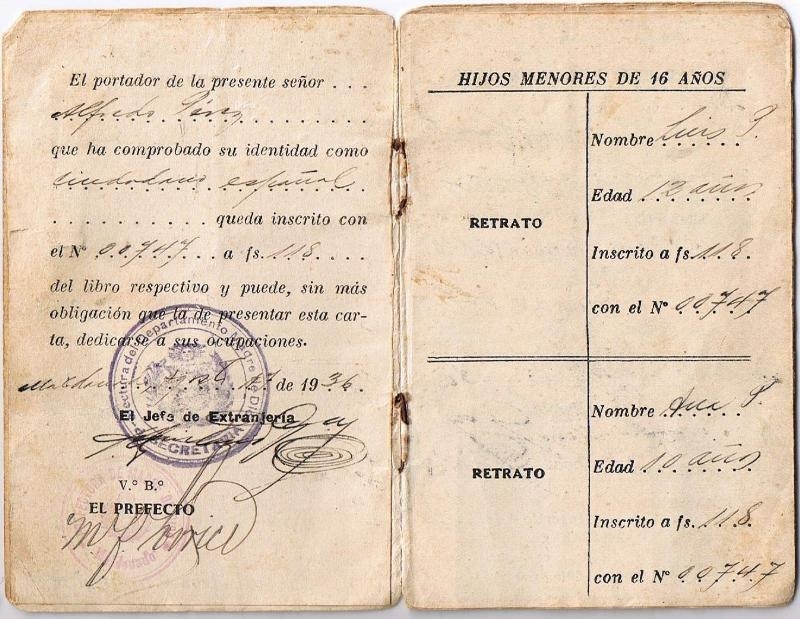 El portador de la presente señor . . .
Alfredo
que ha comprobado su identidad como
ciudadano español
. . . . . . . . . . queda inscrito con
el Nº 00747 a fs. 118
del libro respectivo y puede, sin más
obligación que la de presentar esta car-
ta, dedicarse a sus ocupaciones.
de 1936.
El Jefe de Extranjería
V.º B.º
EL PREFECTO
HIJOS MENORES DE 16 AÑOS
RETRATO
Nombre Luis P.
Edad 13 años
Inscrito a fs. 118.
con el Nº 00747
RETRATO
Nombre Ana P.
Edad 10 años
Inscrito a fs. 118.
con el Nº 00747